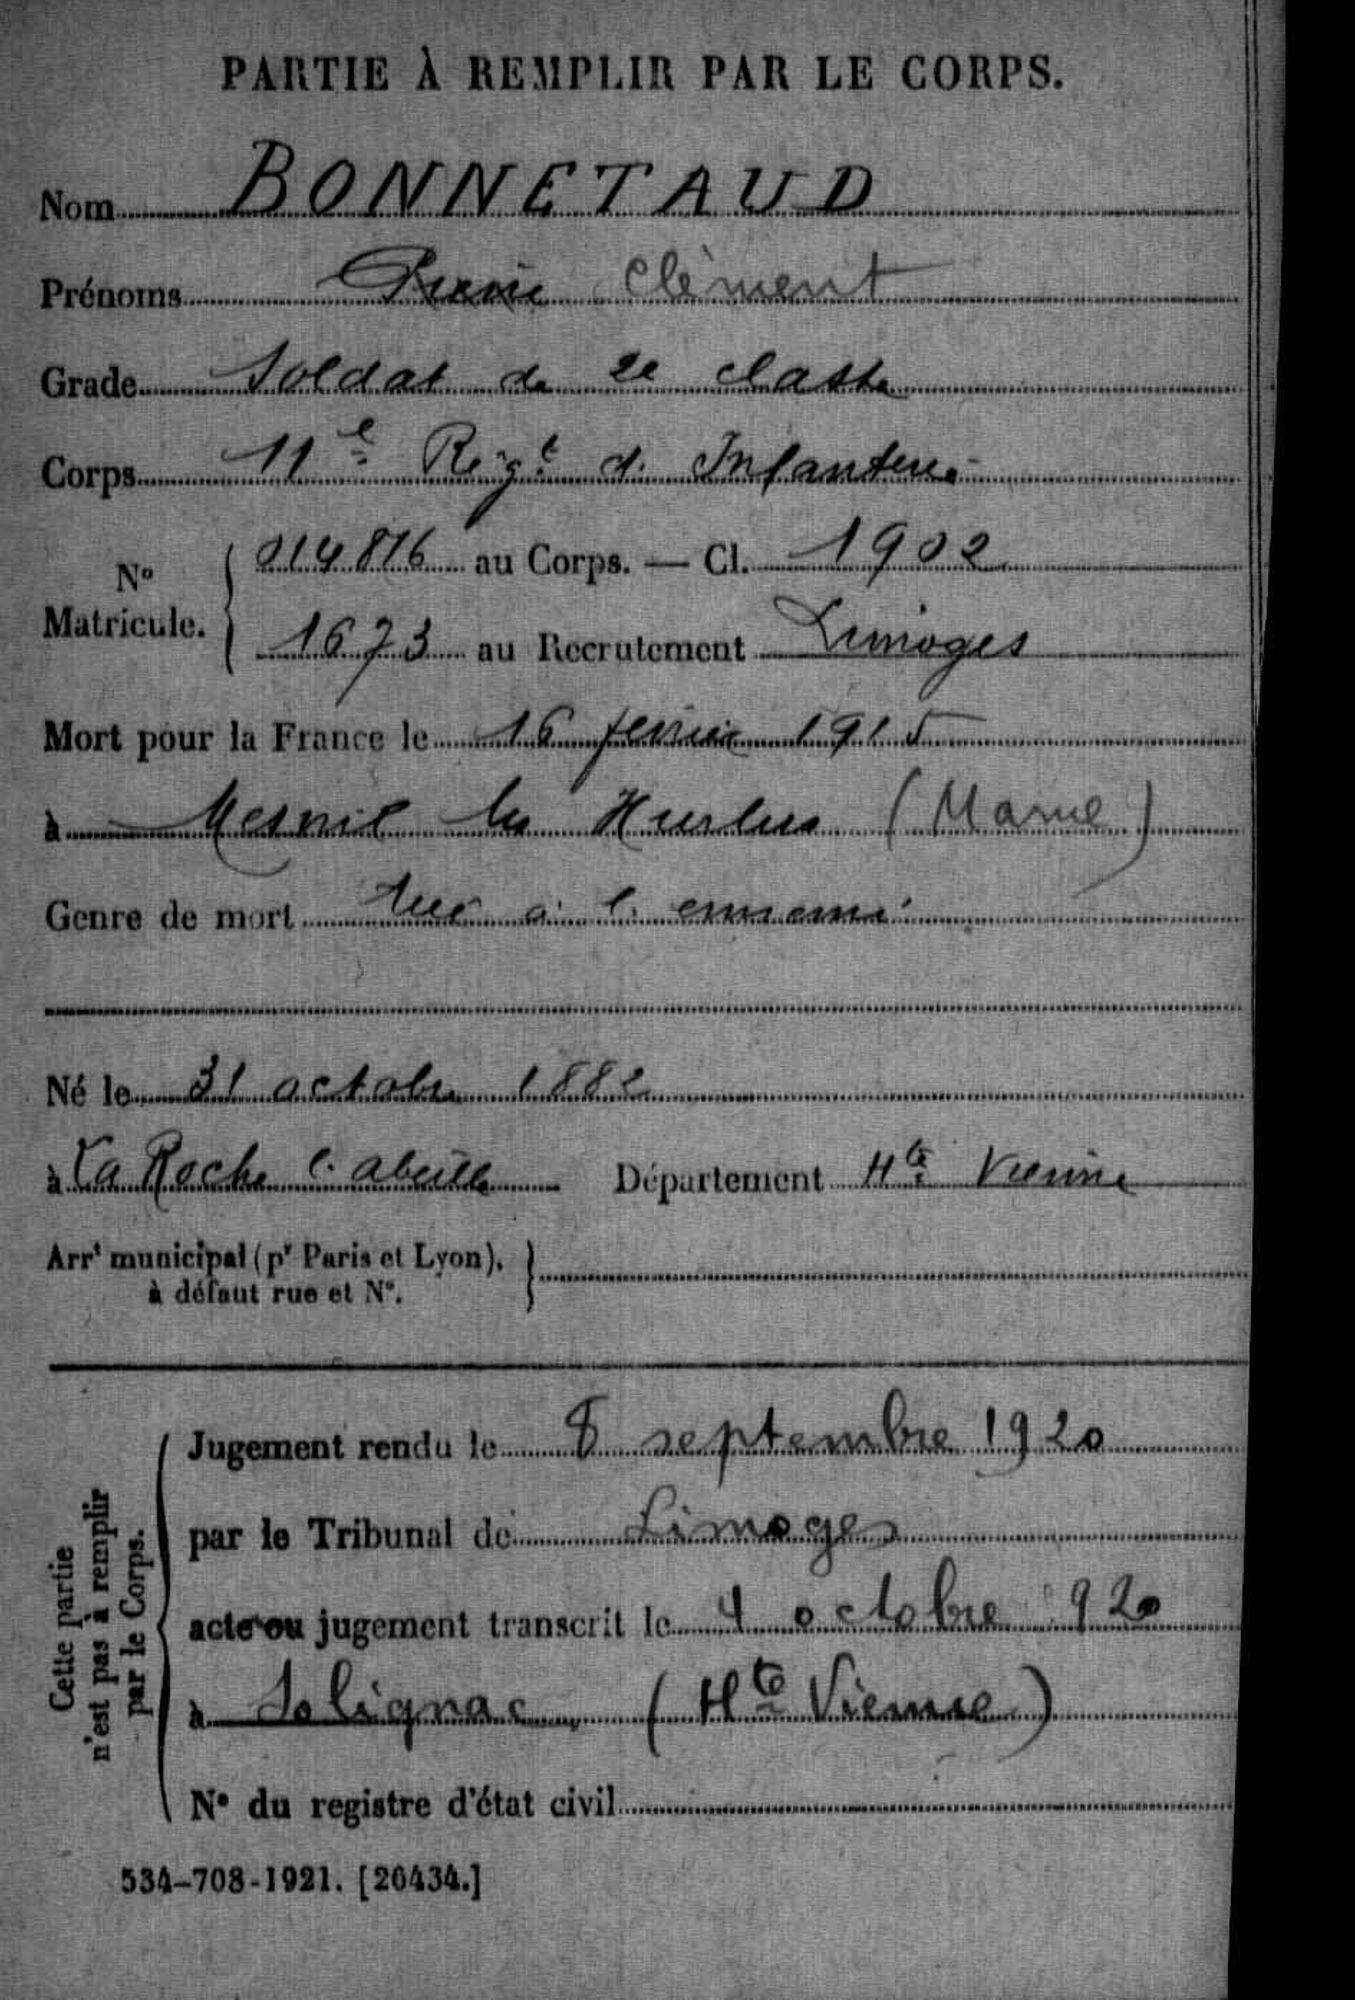 PARTIE À REMPLIR PAR LE CORPS.
Nom BONNETAUD
Prénoms Pierre Clément
Grade Soldat de 2e classe
Corps 11e Regt d'Infanterie
No Matricule. { 014816 au Corps. — Cl. 1902
1673 au Recrutement Limoges
Mort pour la France le 16 fevrier 1915
à Mesnil les Hurlus (Marne)
Genre de mort tué à l'ennemi
Né le 31 octobre 1882
à La Roche l'abeille Département Hte Vienne
Arrt municipal (pr Paris et Lyon),
à défaut rue et No.
Cette partie n'est pas à remplir par le Corps.
Jugement rendu le 8 septembre 1920
par le Tribunal de Limoges
acte ou jugement transcrit le 4 octobre 920
à Solignac (Hte Vienne)
No du registre d'état civil
534-708-1921. [26434.]